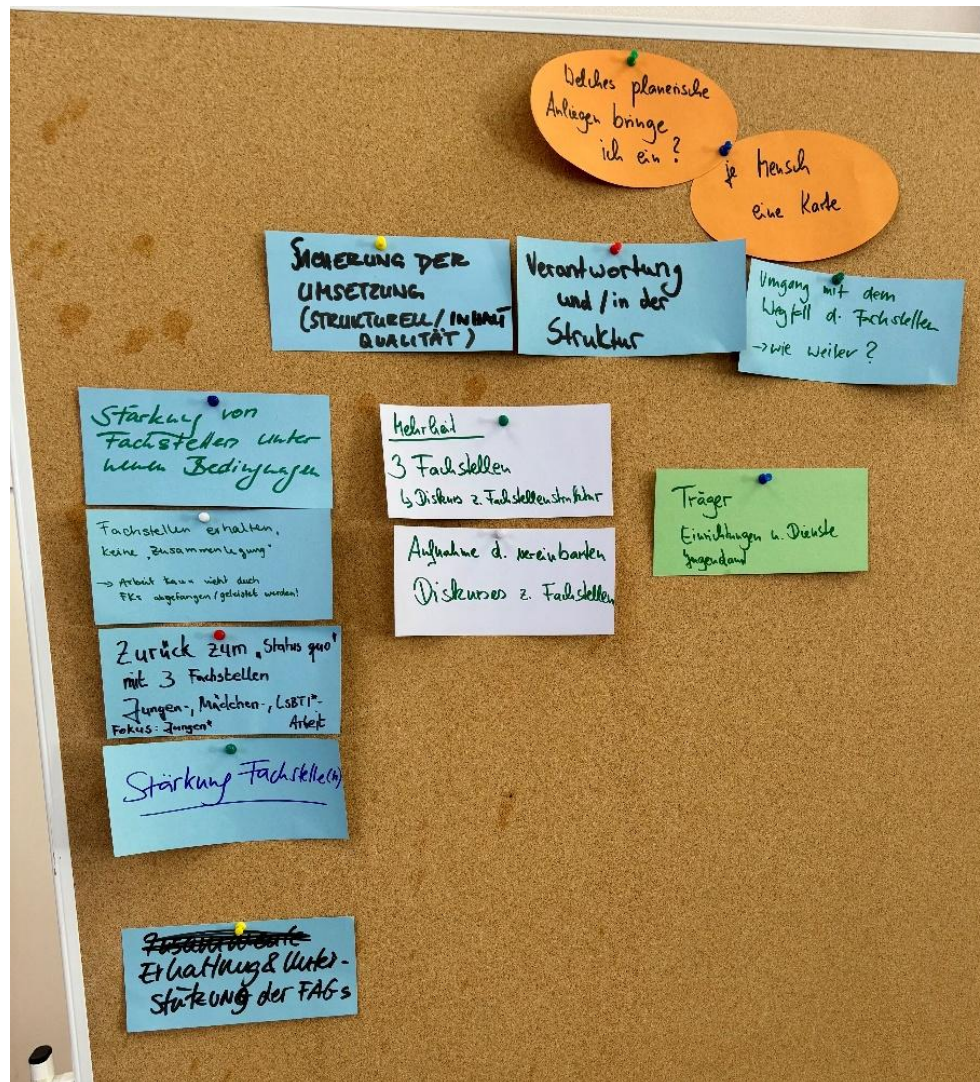 Welches planerische
Anliegen bringe
ich ein?
je Mensch
eine Karte
SICHERUNG DER
UMSETZUNG
(STRUKTURELL/INHALT
QUALITÄT)
Verantwortung
und / in der
Struktur
Umgang mit dem
Wegfall d. Fachstellen
→ wie weiter?
Stärkung von
Fachstellen unter
neuen Bedingungen
Fachstellen erhalten,
keine „Zusammenlegung"
→ Arbeit kann nicht durch
FKs abgefangen/geleistet werden!
Zurück zum „Status quo"
mit 3 Fachstellen
Jungen-, Mädchen-, LSBTI*-
Fokus: Jungen* Arbeit
Stärkung Fachstelle(n)
Erhaltung & Unter-
stützung der FAGs
Mehrheit
3 Fachstellen
↳ Diskurs z. Fachstellenstruktur
Aufnahme d. vereinbarten
Diskurses z. Fachstellen
Träger
Einrichtungen u. Dienste
Jugendamt